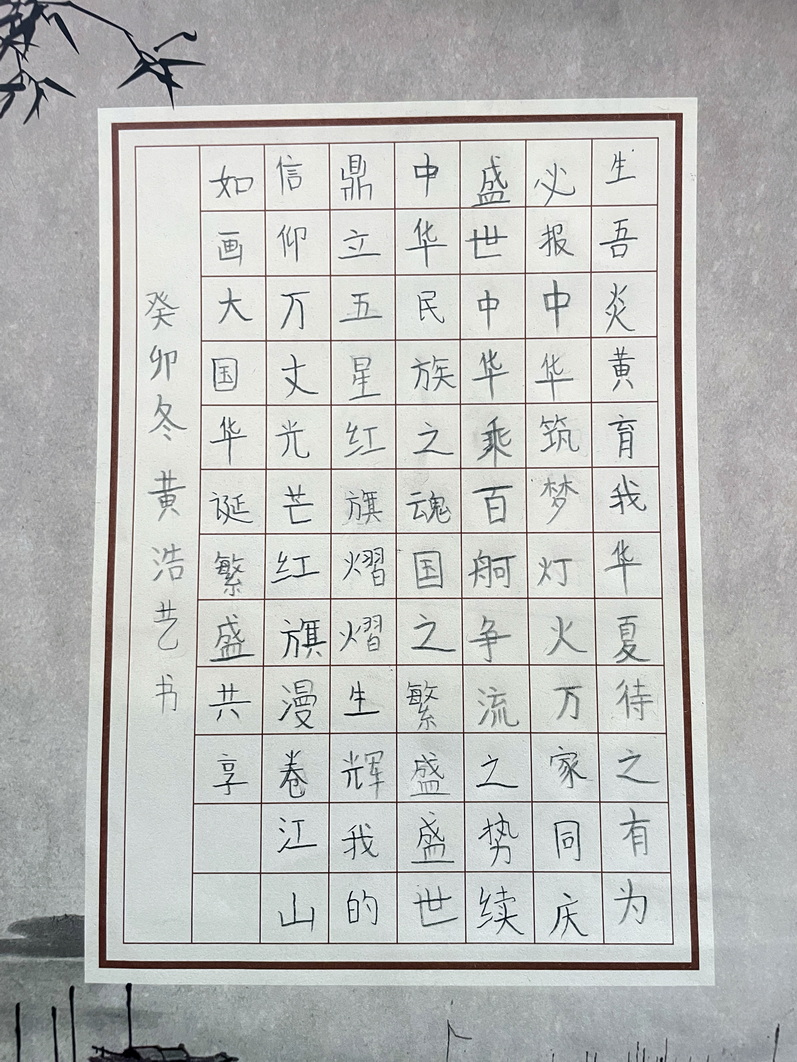 生吾炎黄育我华夏待之有为
必报中华筑梦灯火万家同庆
盛世中华乘百舸争流之势续
中华民族之魂国之繁盛盛世
鼎立五星红旗熠熠生辉我的
信仰万丈光芒红旗漫卷江山
如画大国华诞繁盛共享
癸卯冬黄浩艺书